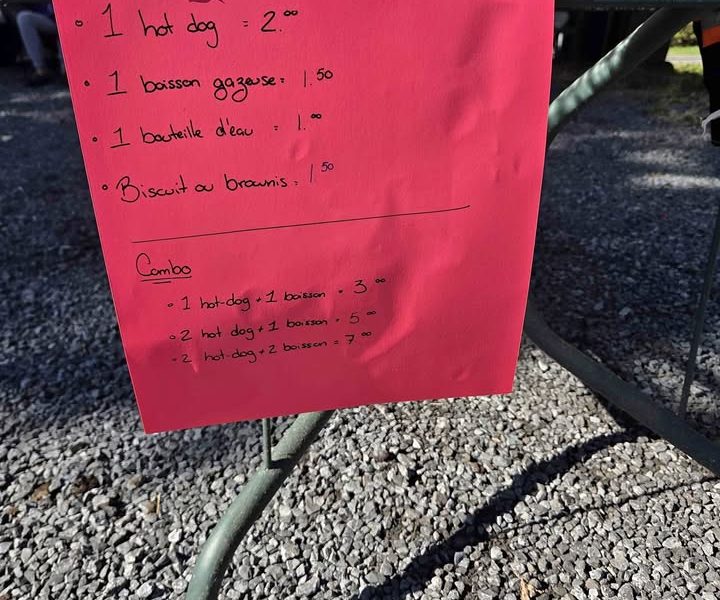 ° 1 hot dog = 2.00
• 1 boisson gazeuse = 1.50
• 1 bouteille d'eau = 1.00
° Biscuit ou brownis = 1.50
Combo
° 1 hot-dog + 1 boisson = 3 00
° 2 hot dog + 1 boisson = 5 00
° 2 hot-dog + 2 boisson = 7 00